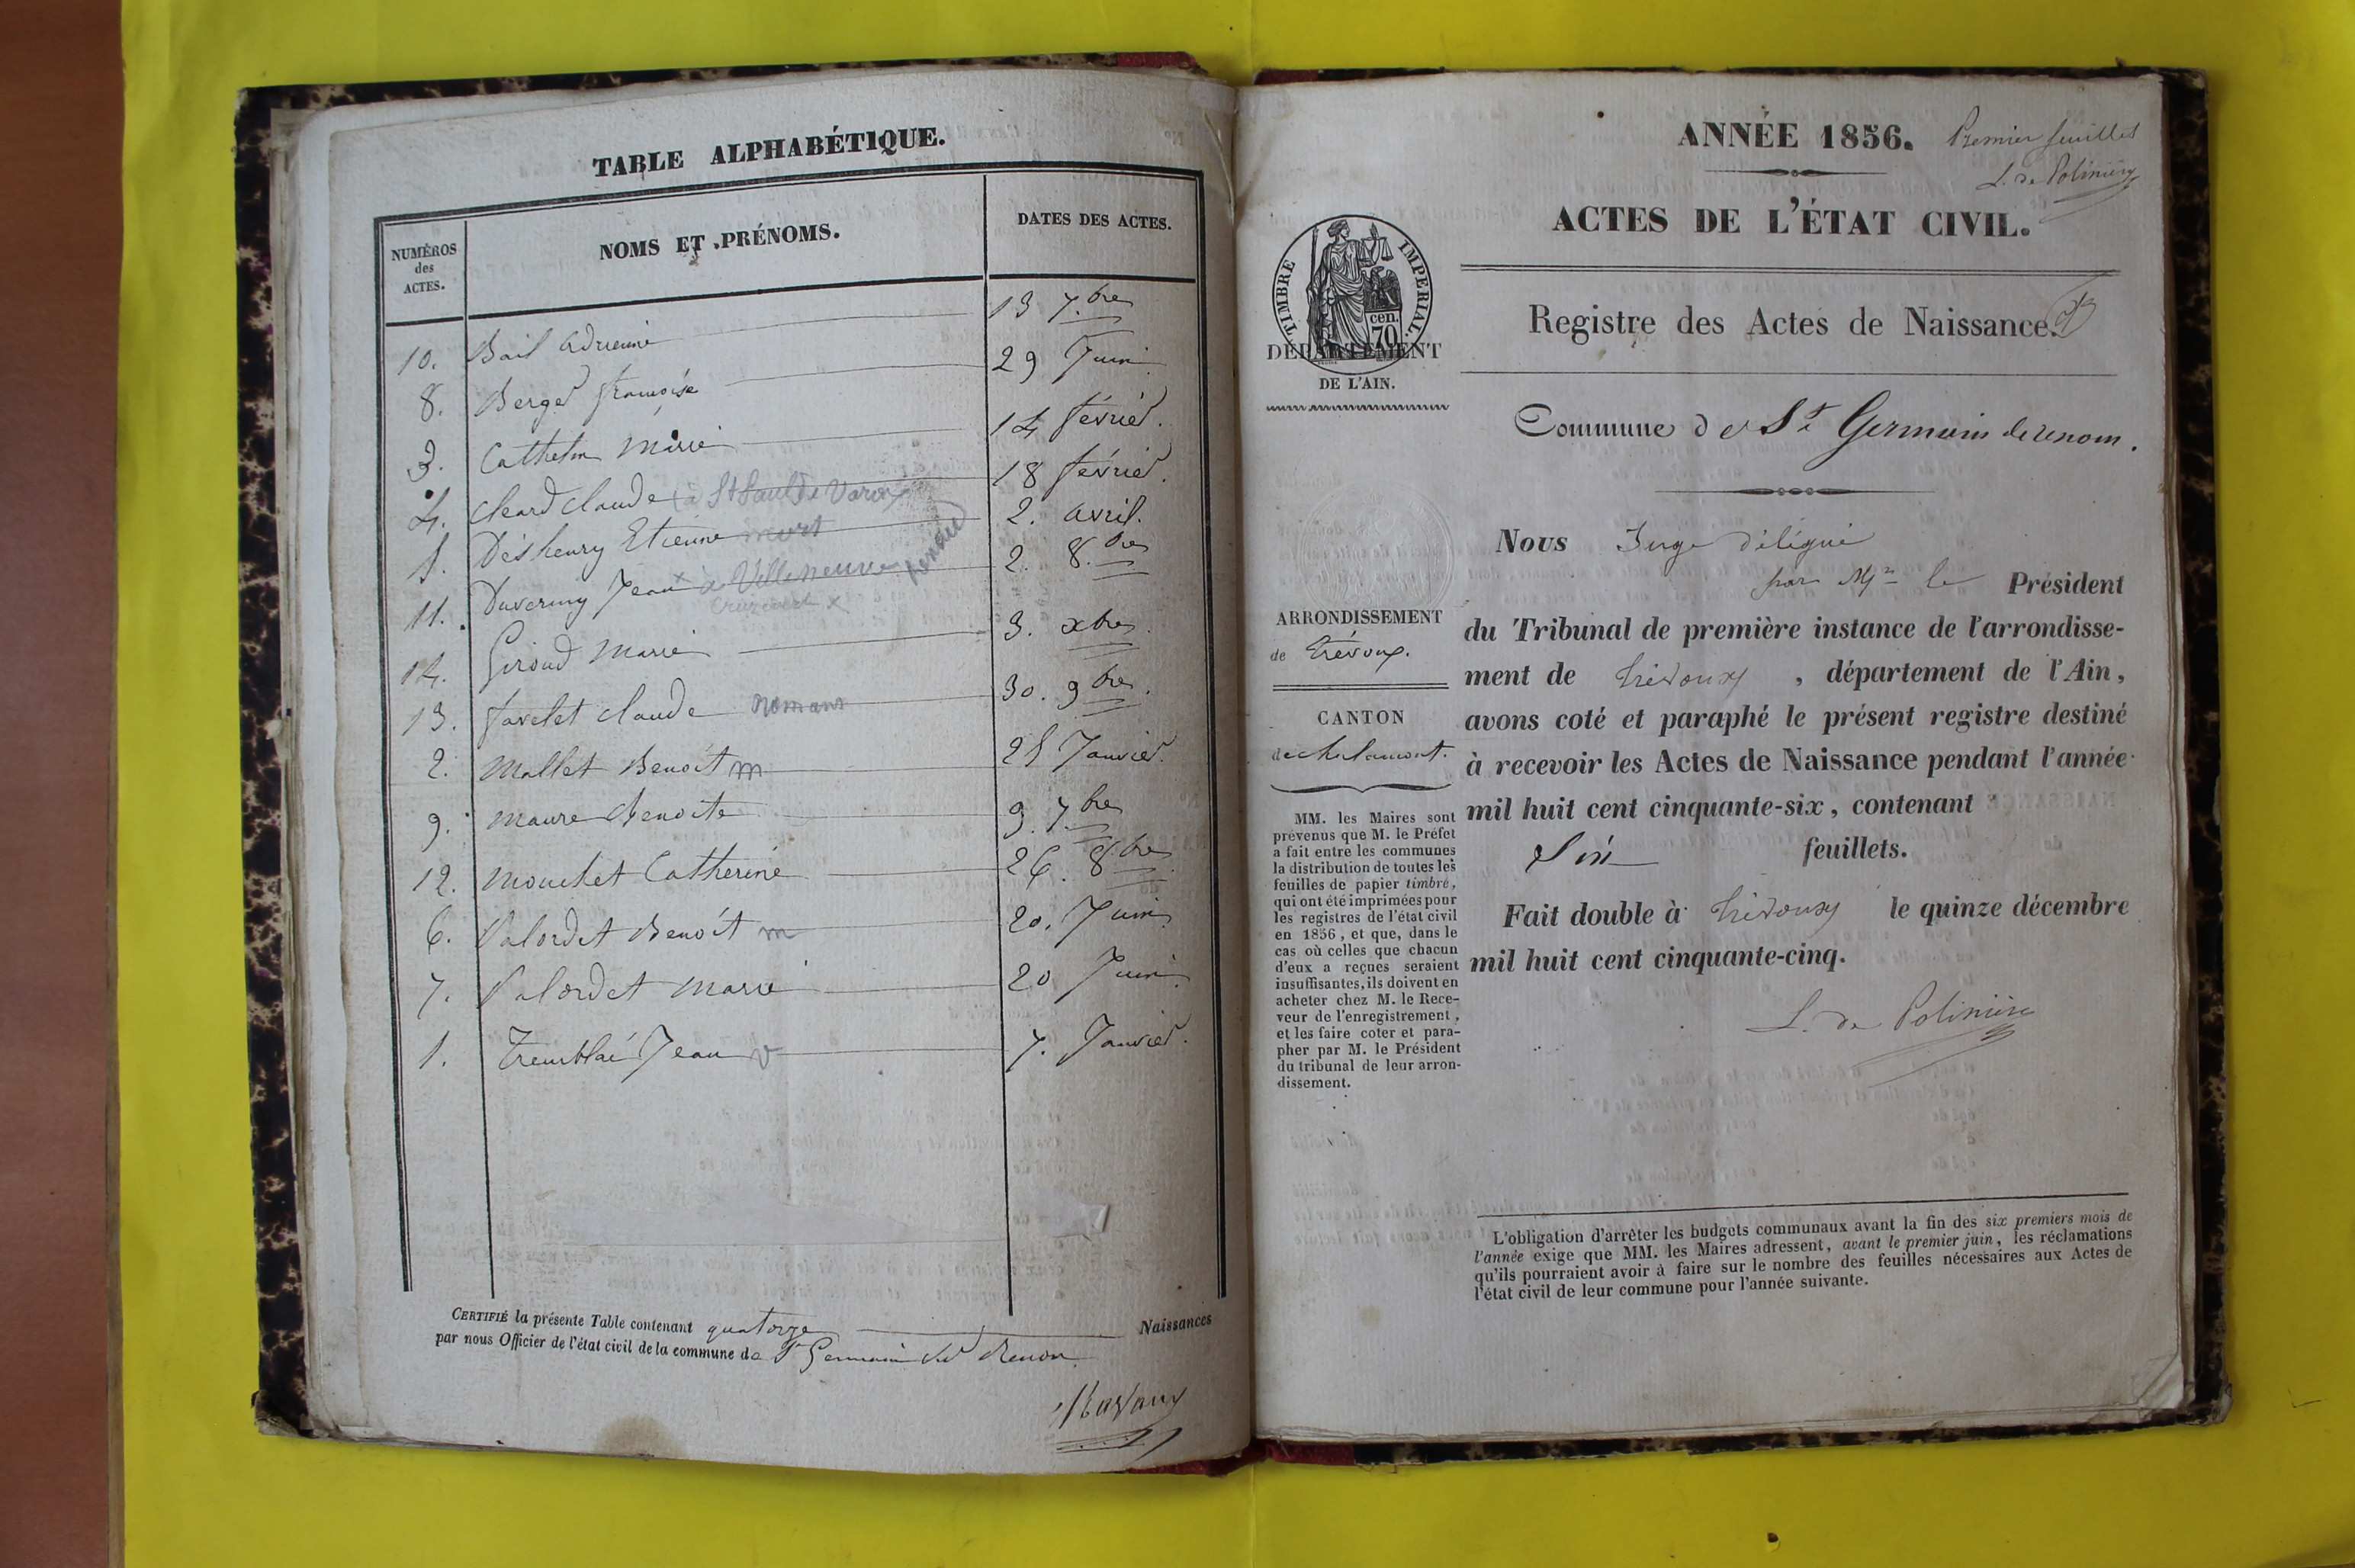 TABLE ALPHABÉTIQUE.
NUMÉROS des ACTES.
NOMS ET PRÉNOMS.
DATES DES ACTES.
10. Bail Adrienne 13 7.bre
8. Berger françoise 29 Juin
3. Cathelin Marie 14 février.
4. cleard claude (à St Paul de Varax) 18 février.
5. Deshenry Etienne mort 2. avril.
11. Duverney Jean x à Villeneuve 2. 8.bre
14. Giroud Marie 3. xbre.
13. favelet claude Romans 30. 9bre.
2. Mallet Benoît m 25 Janvier.
9. Maure Benoite 9. 7.bre
12. Mouchet Catherine 26. 8bre
6. Palordet Benoît m 20. Juin
7. Palordet Marie 20 Juin
1. Tremblai Jean v 7. Janvier.
CERTIFIÉ la présente Table contenant quatorze Naissances
par nous Officier de l'état civil de la commune de St Germain sur Renon
ANNÉE 1856.
Premier feuillet
L. de Polinière
ACTES DE L'ÉTAT CIVIL.
TIMBRE IMPERIAL.
cen. 70
Registre des Actes de Naissance.
DÉPARTEMENT
DE L'AIN.
Commune de St Germain de renom.
Nous Juge délégué
par Mr le Président
du Tribunal de première instance de l'arrondisse-
ment de Trévoux , département de l'Ain,
avons coté et paraphé le présent registre destiné
à recevoir les Actes de Naissance pendant l'année
mil huit cent cinquante-six, contenant
Six feuillets.
Fait double à Trévoux le quinze décembre
mil huit cent cinquante-cinq.
L. de Polinière
ARRONDISSEMENT
de Trévoux.
CANTON
de Chalamont.
MM. les Maires sont
prévenus que M. le Préfet
a fait entre les communes
la distribution de toutes les
feuilles de papier timbré,
qui ont été imprimées pour
les registres de l'état civil
en 1856, et que, dans le
cas où celles que chacun
d'eux a reçues seraient
insuffisantes, ils doivent en
acheter chez M. le Rece-
veur de l'enregistrement,
et les faire coter et para-
pher par M. le Président
du tribunal de leur arron-
dissement.
L'obligation d'arrêter les budgets communaux avant la fin des six premiers mois de
l'année exige que MM. les Maires adressent, avant le premier juin, les réclamations
qu'ils pourraient avoir à faire sur le nombre des feuilles nécessaires aux Actes de
l'état civil de leur commune pour l'année suivante.